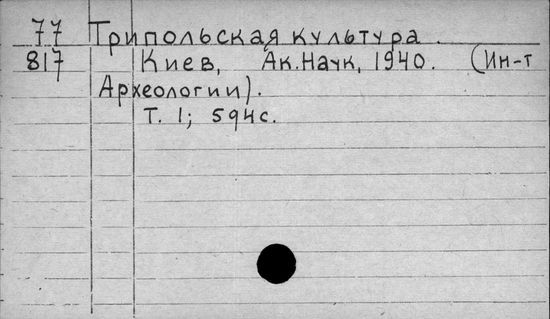 77 Трипольская культура.
817 Киев, Ак.Наук, 1940. (Ин-т
Археологии).
Т. 1; 594с.